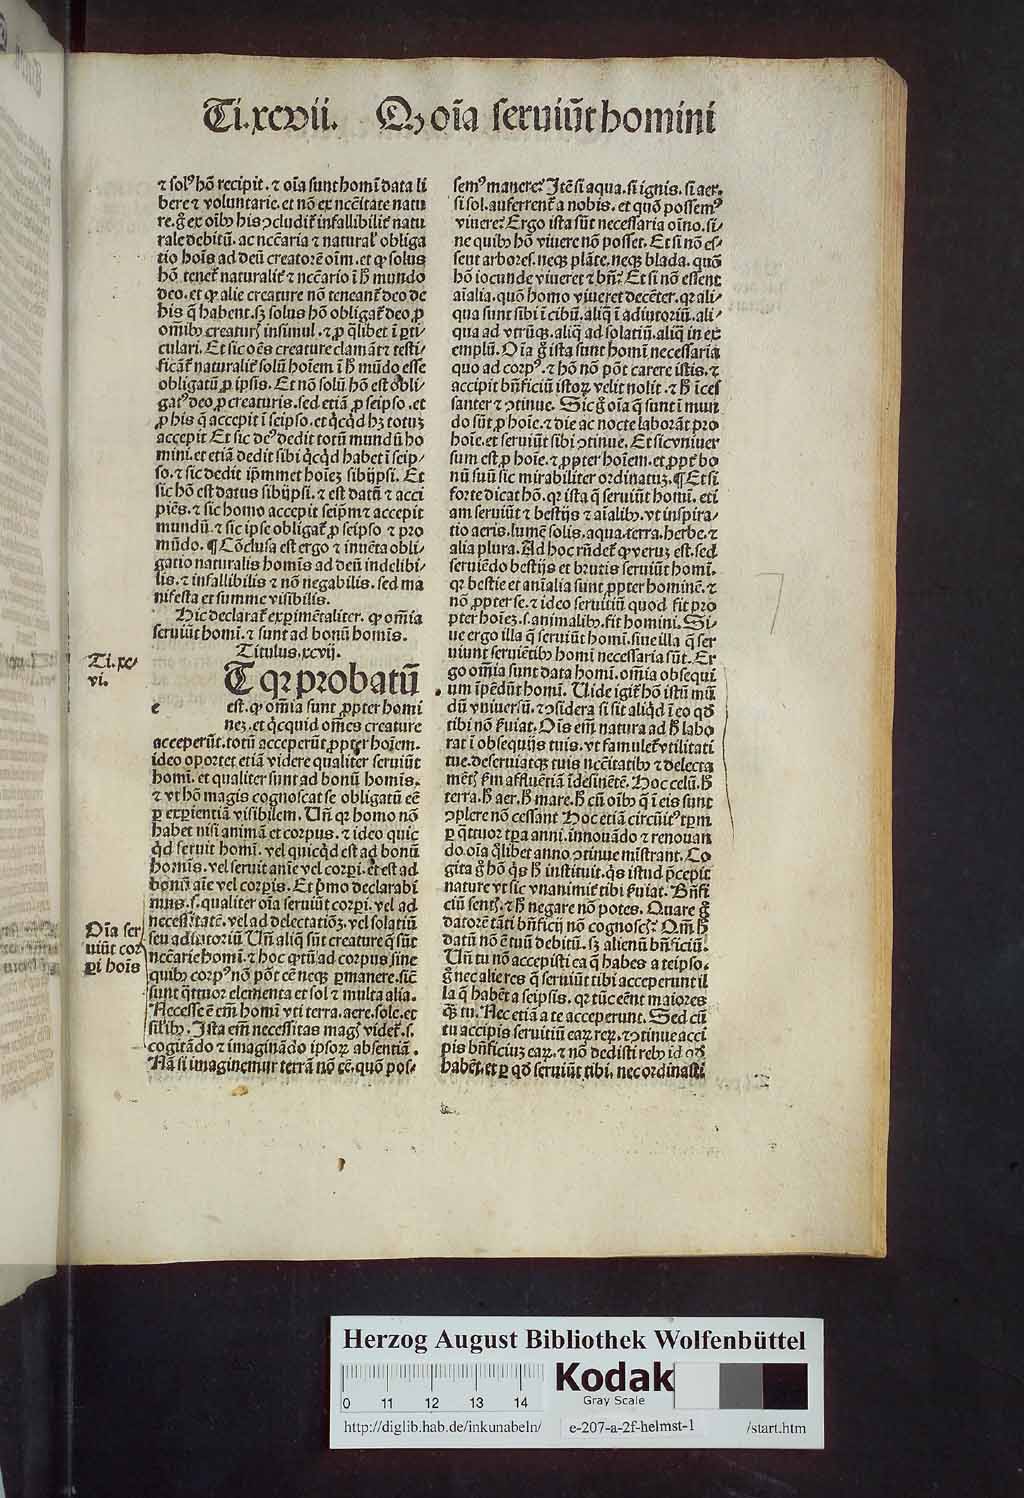 Ti.xcvii. Qꝫ oīa ſeruiūt homini
⁊ ſolꝰ hō recipit. ⁊ oīa ſunt homī data li
bere ⁊ voluntarie. et nō ex nc̄citate natu
re. gͦ ex oībꝰ his ꝯcludit᷑ infallibilit᷑ natu
rale debitū. ac nc̄caria ⁊ natural᷑ obliga
tio hoīs ad deū creatorē oīm. et ꝙ ſolus
hō tenet᷑ naturalit᷑ ⁊ nc̄cario ī h̄ mundo
deo. et ꝙ alie creature nō teneant᷑ deo de
his q̄ habent. ſꝫ ſolus hō obligat᷑ deo ꝓ
om̄ibꝰ creaturꝭ inſimul. ⁊ ꝓ qͣlibet ī ꝑti⸗
culari. Et ſic oēs creature clamāt ⁊ teſti⸗
ficāt᷑ naturalit᷑ ſolū hoīem ī h̄ mūdo eſſe
obligatū ꝓ ipſis. Et nō ſolū hō eſt obli⸗
gatꝰ deo ꝓ creaturis. ſed etiā ꝓ ſeipſo. et
ꝓ his q̄ accepit ī ſeipſo. et qͥcqͥd hꝫ totuꝫ
accepit Et ſic deꝰ dedit totū mundū ho
mini. et etiā dedit ſibi qͥcqͥd habet ī ſeip⸗
ſo. ⁊ ſic dedit ip̄mmet hoīeꝫ ſibijpſi. Et
ſic hō eſt datus ſibijpſi. ⁊ eſt datū ⁊ acci
piēs. ⁊ ſic homo accepit ſeip̄m ⁊ accepit
mundū. ⁊ ſic ipſe obligat᷑ ꝓ ſeipſo ⁊ pro
mūdo. ¶ Cōcluſa eſt ergo ⁊ inuēta obli⸗
gatio naturalis homīs ad deū indelibi⸗
lis. ⁊ infallibilis ⁊ nō negabilis. ſed ma
nifeſta et ſumme viſibilis.
Hic declarat᷑ exꝑimētaliter. ꝙ om̄ia
ſeruiūt homī. ⁊ ſunt ad bonū homīs.
Titulus. xcvij.
Ti. xc⸗
vi.
e
T qꝛ probatū
eſt. ꝙ om̄ia ſunt ꝓpter homi
neꝫ. et qͥcquid om̄es creature
acceperūt. totū acceperūt ꝓpter hoīem.
ideo oportet etiā videre qualiter ſeruiūt
homī. et qualiter ſunt ad bonū homīs.
⁊ vt hō magis cognoſcat ſe obligatū eē
ꝑ exꝑientiā viſibilem. Uñ qꝛ homo nō
habet niſi animā et corpus. ⁊ ideo quic
qͥd ſeruit homī. vel quicqͥd eſt ad bonū
homīs. vel ſeruit aīe vel corꝑi. et eſt ad
bonū aīe vel corꝑis. Et pͥmo declarabi
mus. ſ. qualiter oīa ſeruiūt corꝑi. vel ad
neceſſitatē. vel ad delectatiōꝫ. vel ſolatiū
ſeu adiutoriū Uñ aliqͣ ſūt creature q̄ ſūt
nc̄carie homī. ⁊ hoc qͣꝫtū ad corpus ſine
quibꝰ corpꝰ nō pōt eē neqꝫ ꝑmanere. ſicē
ſunt qͣttuor elementa et ſol ⁊ multa alia.
Neceſſe ē em̄ homī vti terra. aere. ſole. et
ſil'ibꝰ. Iſta em̄ neceſſitas magꝭ videt᷑. ſ.
cogitādo ⁊ imaginādo ipſoꝝ abſentiā.
Nā ſi imaginemur terrā nō eē. quō poſ⸗
Oīa ſer
uiūt cor
ꝑi hoīs
ſemꝰ manere? Itē ſi aqua. ſi ignis. ſi aer.
ſi ſol. auferrent᷑ a nobis. et quō poſſemꝰ
viuere? Ergo iſta ſūt neceſſaria oīno. ſi⸗
ne quibꝰ hō viuere nō poſſet. Et ſi nō eſ⸗
ſent arbores. neqꝫ plāte. neqꝫ blada. quō
hō iocunde viueret ⁊ bñ? Et ſi nō eſſent
aīalia. quō homo viueret decēter. qꝛ ali⸗
qua ſunt ſibi ī cibū. aliqͣ ī adiutoriū. ali⸗
qua ad vtrūqꝫ. aliqͣ ad ſolatiū. aliqͣ in ex
emplū. Oīa gͦ iſta ſunt homī neceſſaria
quo ad corpꝰ. ⁊ hō nō pōt carere iſtis. ⁊
accipit bñficiū iſtoꝝ velit nolit. ⁊ h̄ īceſ
ſanter ⁊ ꝯtinue. Sic gͦ oīa q̄ ſunt ī mun
do ſūt ꝓ hoīe. ⁊ die ac nocte laborāt pro
hoīe. et ſeruiūt ſibi ꝯtinue. Et ſic vniuer
ſum eſt ꝓ hoīe. ⁊ ꝓpter hoīem. et ꝓpt᷑ bo
nū ſuū ſic mirabiliter ordinatuꝫ. ¶ Et ſi
forte dicat hō. qꝛ iſta q̄ ſeruiūt homī. eti
am ſeruiūt ⁊ beſtijs ⁊ aīalibꝰ. vt inſpira⸗
tio aeris. lumē ſolis. aqua. terra. herbe. ⁊
alia plura. Ad hoc rñdet᷑ ꝙ veruꝫ eſt. ſed
ſeruiēdo beſtijs et brutis ſeruiūt homī.
qꝛ beſtie et aīalia ſunt ꝓpter hominē. ⁊
nō ꝓpter ſe. ⁊ ideo ſeruitiū quod fit pro
pter hoīeꝫ. ſ. animalibꝰ. fit homini. Si⸗
ue ergo illa q̄ ſeruiūt homī. ſiue illa q̄ ſer
uiunt ſeruiētibꝰ homī neceſſaria ſūt. Er
go om̄ia ſunt data homī. om̄ia obſequi
um īpēdūt homī. Uide igit᷑ hō iſtū mū
dū vniuerſū. ⁊ ꝯſidera ſi ſit aliqͥd ī eo qđ
tibi nō ẜuiat. Oīs em̄ natura ad h̄ labo
rat ī obſequijs tuis. vt famulet᷑ vtilitati
tue. deſeruiatqꝫ tuis nc̄citatibꝰ ⁊ delecta
mētꝭ ẜm affluētiā īdeſinētē. Hoc celū. h̄
terra. h̄ aer. h̄ mare. h̄ cū oībꝰ q̄ ī eis ſunt
ꝯplere nō ceſſant Hoc etiā circūitꝰ tꝑm
ꝑ qͣttuor tꝑa anni. innouādo ⁊ renouan
do. oīa qͦlibet anno ꝯtinue miſtrant. Co
gita gͦ hō qͥs h̄ inſtituit. qͥs iſtud p̄cepit
nature vt ſic vnanimit᷑ tibi ẜuiat. Bñfi
ciū ſentꝭ. ⁊ h̄ negare nō potes. Quare gͦ
datorē tāti bñficij nō cognoſcꝭ? Om̄ h̄
datū nō ē tuū debitū. ſꝫ alienū bñficiū.
Uñ tu nō accepiſti ea q̄ habes a teipſo.
gͦ nec alie res q̄ ſeruiūt tibi acceperunt il
la q̄ habēt a ſeipſis. qꝛ tūc eēnt maiores
qͣꝫ tu. Nec etiā a te acceperunt. Sed cū
tu accipis ſeruitiū eaꝝ reꝝ. ⁊ ꝯtinue acci
pis bñficiuꝫ eaꝝ. ⁊ nō dediſti rebꝰ id qđ
habēt. et ꝑ qđ ſeruiūt tibi. nec ordinaſti
7
Herzog August Bibliothek Wolfenbüttel
0 11 12 13 14
Kodak
Gray Scale
http://diglib.hab.de/inkunabeln/ e-207-a-2f-helmst-1 /start.htm